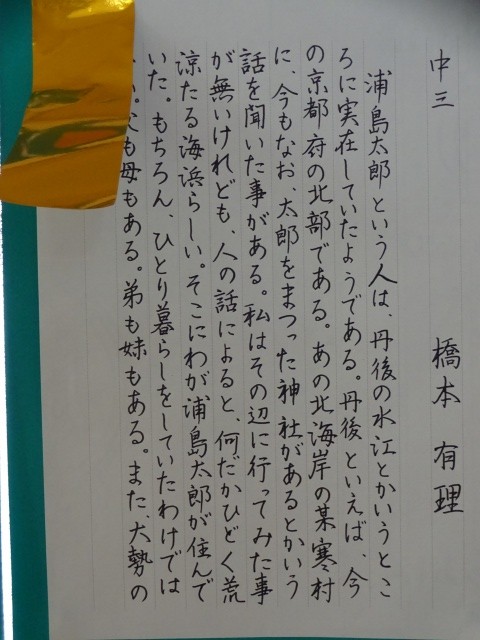 中三 橋本有理
浦島太郎という人は、丹後の水江とかいうとこ
ろに実在していたようである。丹後といえば、今
の京都府の北部である。あの北海岸の某寒村
に、今もなお、太郎をまつった神社があるとかいう
話を聞いた事がある。私はその辺に行ってみた事
が無いけれども、人の話によると、何だかひどく荒
涼たる海浜らしい。そこにわが浦島太郎が住んで
いた。もちろん、ひとり暮らしをしていたわけでは
い。父も母もある。弟も妹もある。また、大勢の